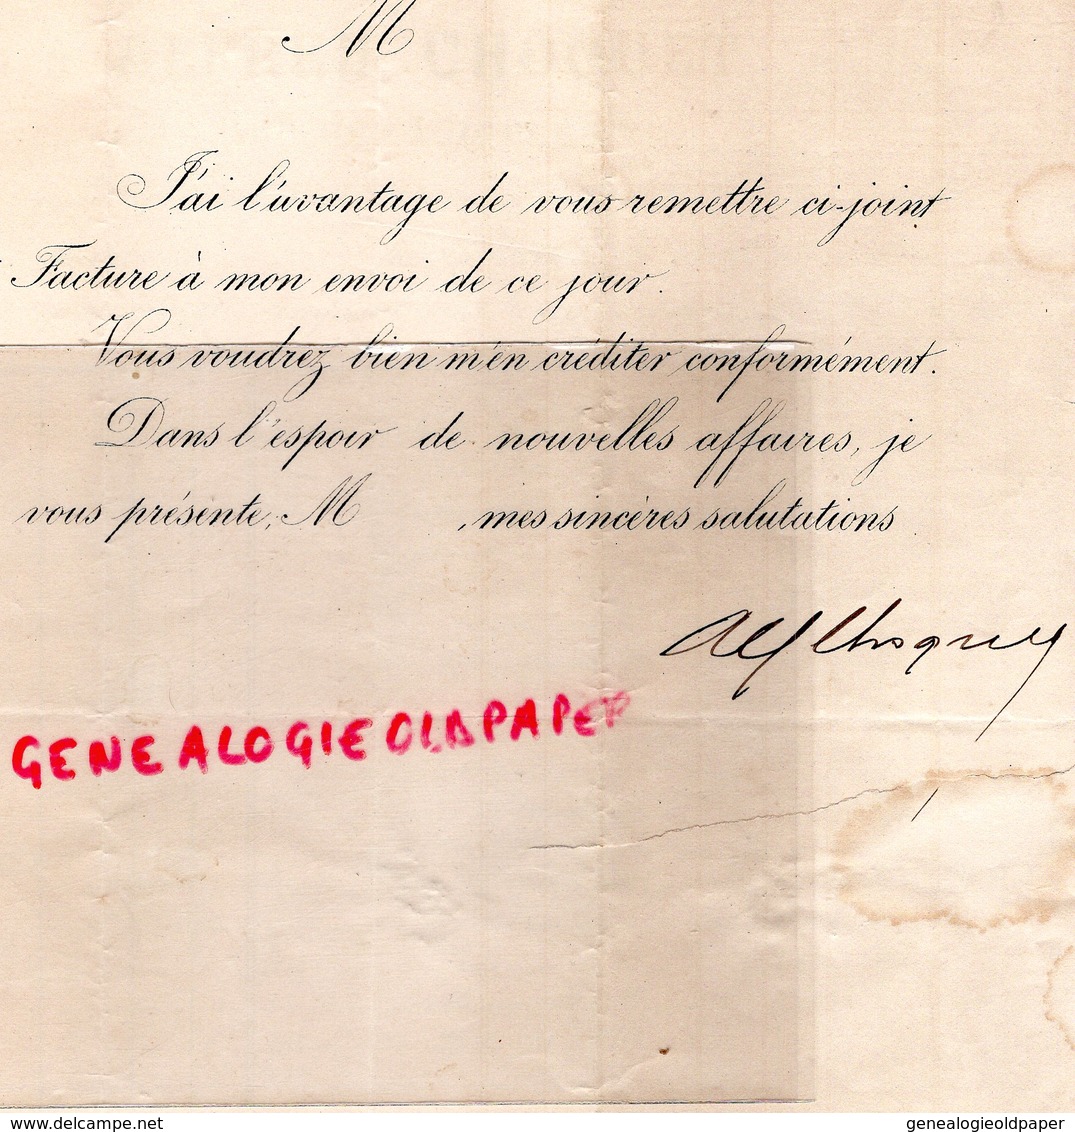 M
J'ai l'avantage de vous remettre ci-joint
Facture à mon envoi de ce jour.
Vous voudrez bien m'en créditer conformément.
Dans l'espoir de nouvelles affaires, je
vous présente, M , mes sincères salutations
GENEALOGIE OLDPAPER
delcampe.net
genealogieoldpaper